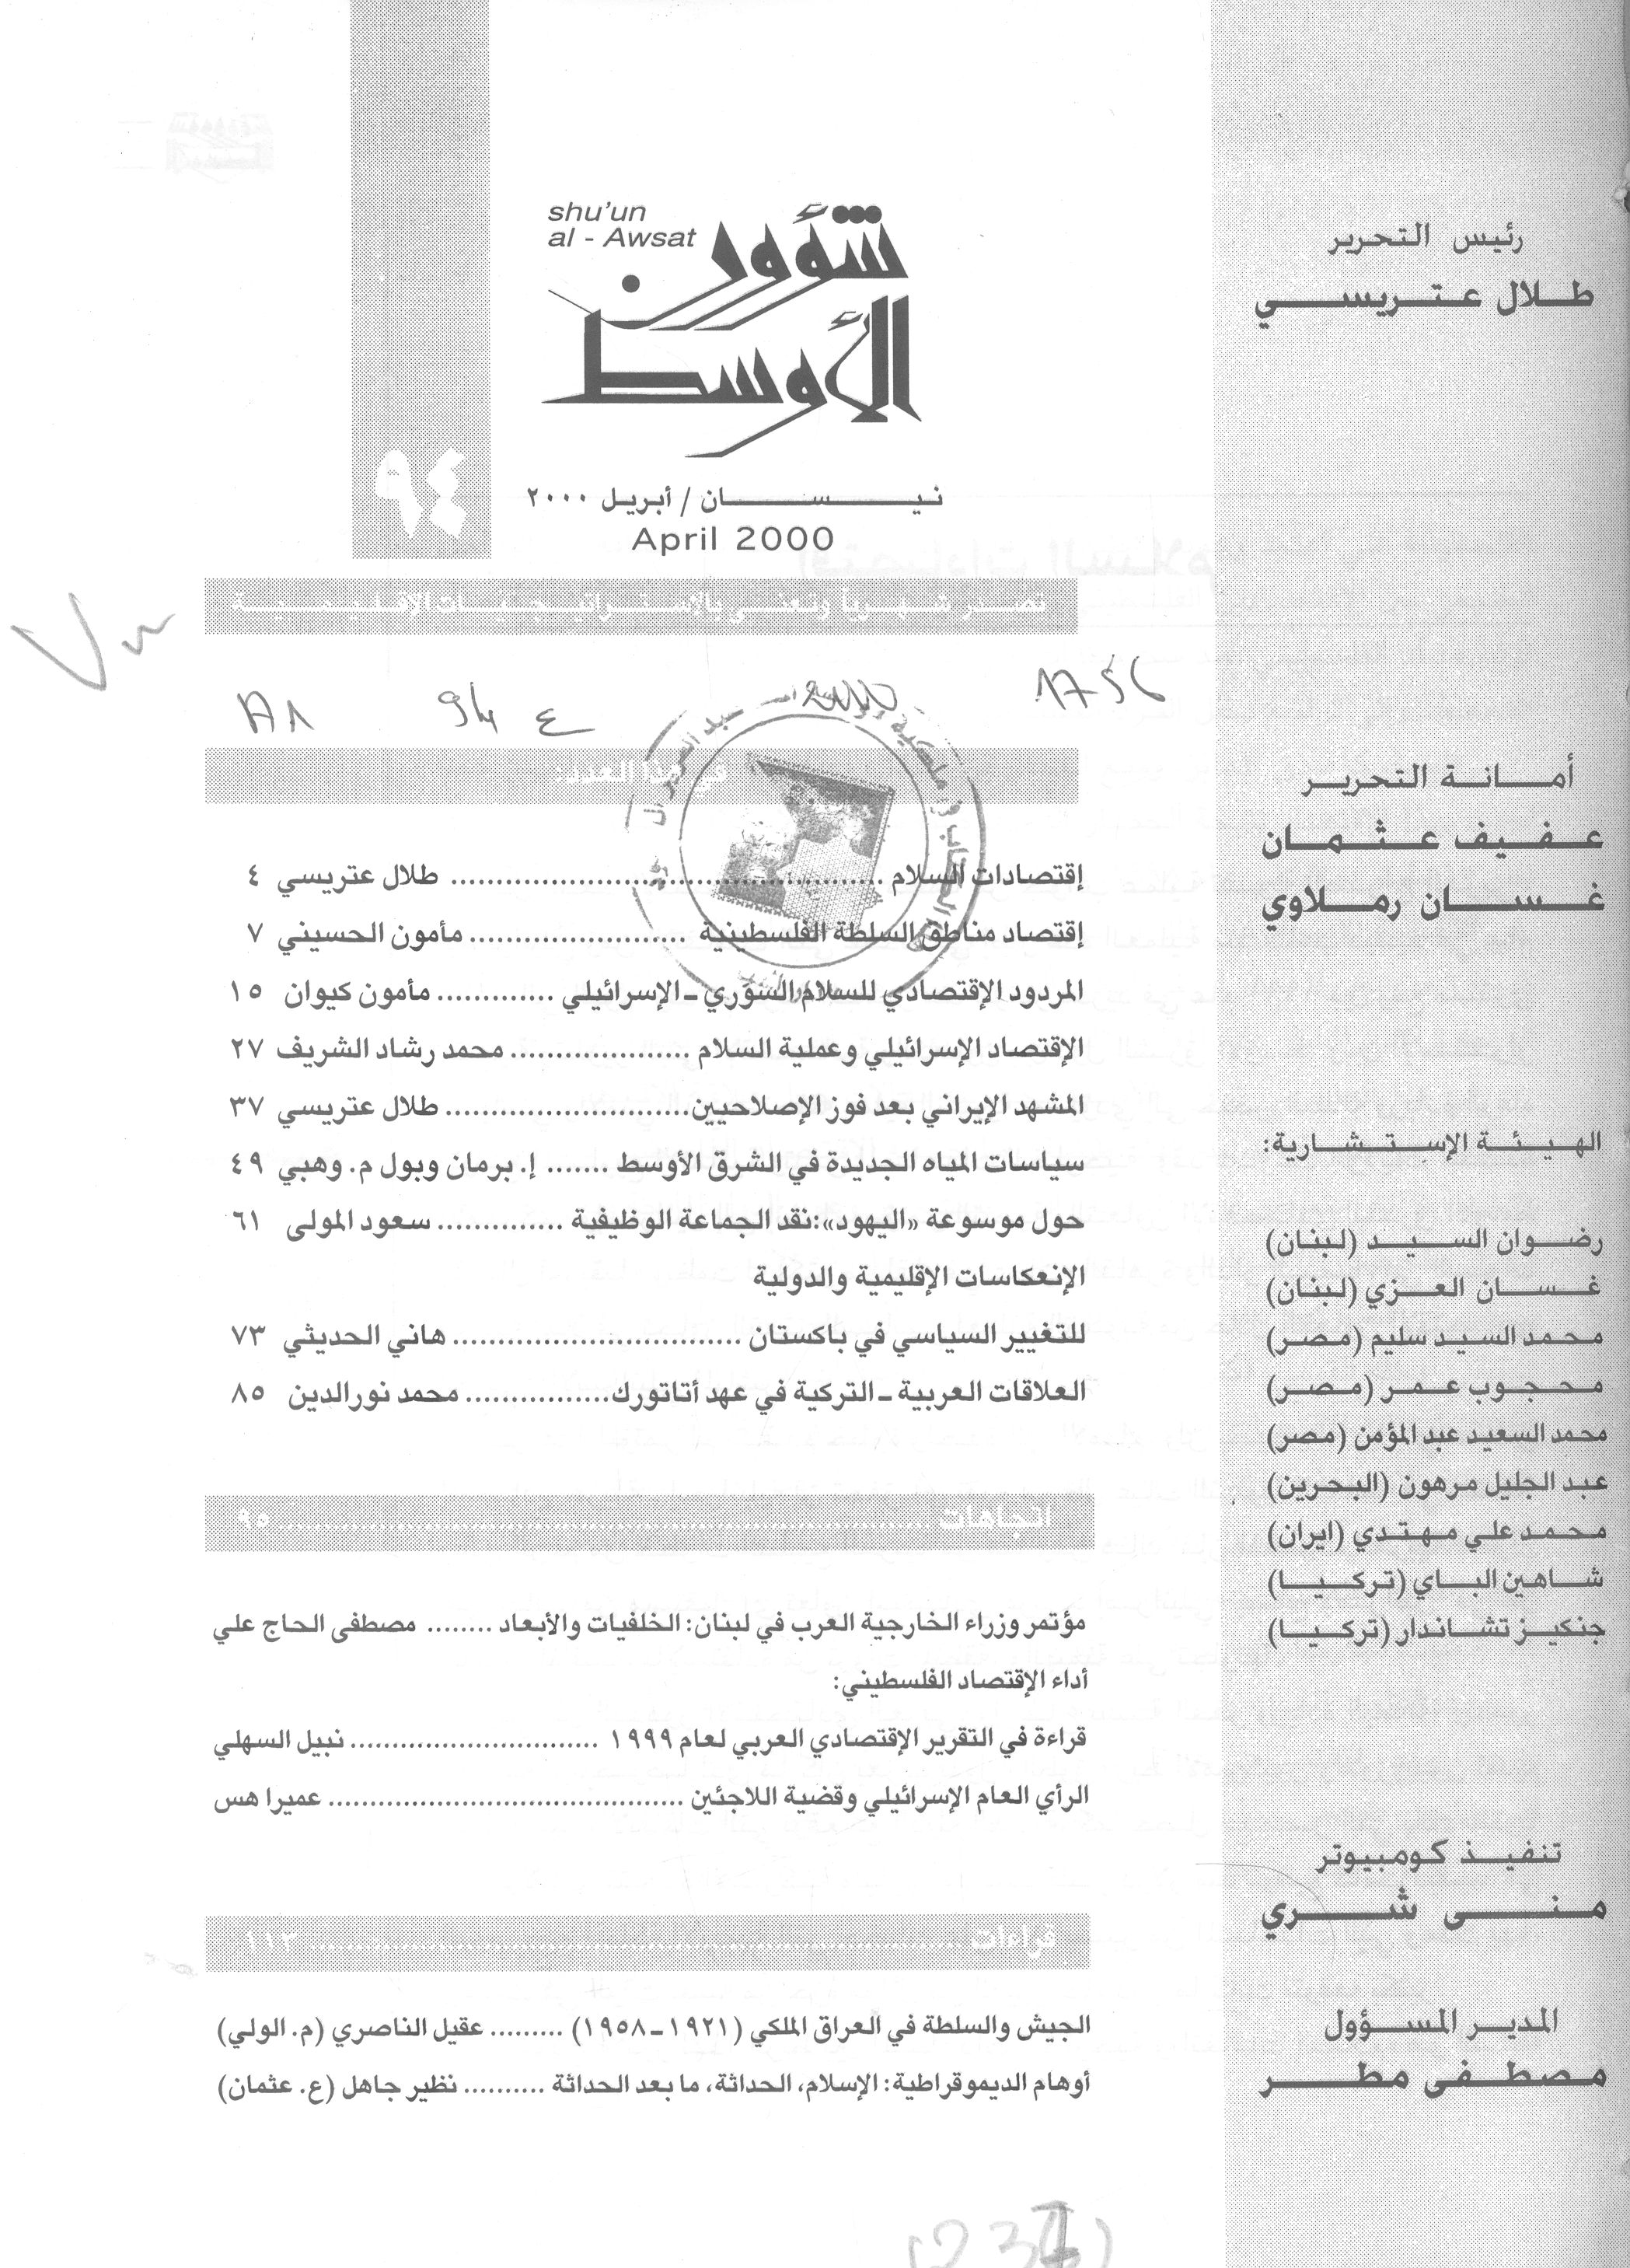 shu'un
al - Awsat
شؤون
الأوسط
٩٤
نيسان / أبريل ٢٠٠٠
April 2000
تصدر شهرياً وتعنى بالاستراتيجيات الإقليمية
94 ع
2000
1756
في هذا العدد:
إقتصادات السلام ........ طلال عتريسي ٤
إقتصاد مناطق السلطة الفلسطينية ........ مأمون الحسيني ٧
المردود الإقتصادي للسلام السوري ـ الإسرائيلي ........ مأمون كيوان ١٥
الإقتصاد الإسرائيلي وعملية السلام ........ محمد رشاد الشريف ٢٧
المشهد الإيراني بعد فوز الإصلاحيين ........ طلال عتريسي ٣٧
سياسات المياه الجديدة في الشرق الأوسط ....... إ. برمان وبول م. وهبي ٤٩
حول موسوعة «اليهود»: نقد الجماعة الوظيفية ........ سعود المولى ٦١
الإنعكاسات الإقليمية والدولية
للتغيير السياسي في باكستان ........ هاني الحديثي ٧٣
العلاقات العربية ـ التركية في عهد أتاتورك ........ محمد نورالدين ٨٥
اتجاهات ........ ٩٥
مؤتمر وزراء الخارجية العرب في لبنان: الخلفيات والأبعاد ........ مصطفى الحاج علي
أداء الإقتصاد الفلسطيني:
قراءة في التقرير الإقتصادي العربي لعام ١٩٩٩ ........ نبيل السهلي
الرأي العام الإسرائيلي وقضية اللاجئين ........ عميرا هس
قراءات ........ ١١٣
الجيش والسلطة في العراق الملكي (١٩٢١ـ١٩٥٨) ......... عقيل الناصري (م. الولي)
أوهام الديموقراطية: الإسلام، الحداثة، ما بعد الحداثة .......... نظير جاهل (ع. عثمان)
رئيس التحرير
طلال عتريسي
أمانة التحرير
عفيف عثمان
غسان رملاوي
الهيئة الإستشارية:
رضوان السيد (لبنان)
غسان العزي (لبنان)
محمد السيد سليم (مصر)
محجوب عمر (مصر)
محمد السعيد عبد المؤمن (مصر)
عبد الجليل مرهون (البحرين)
محمد علي مهتدي (ايران)
شاهين الباي (تركيا)
جنكيز تشاندار (تركيا)
تنفيذ كومبيوتر
منى شري
المدير المسؤول
مصطفى مطر